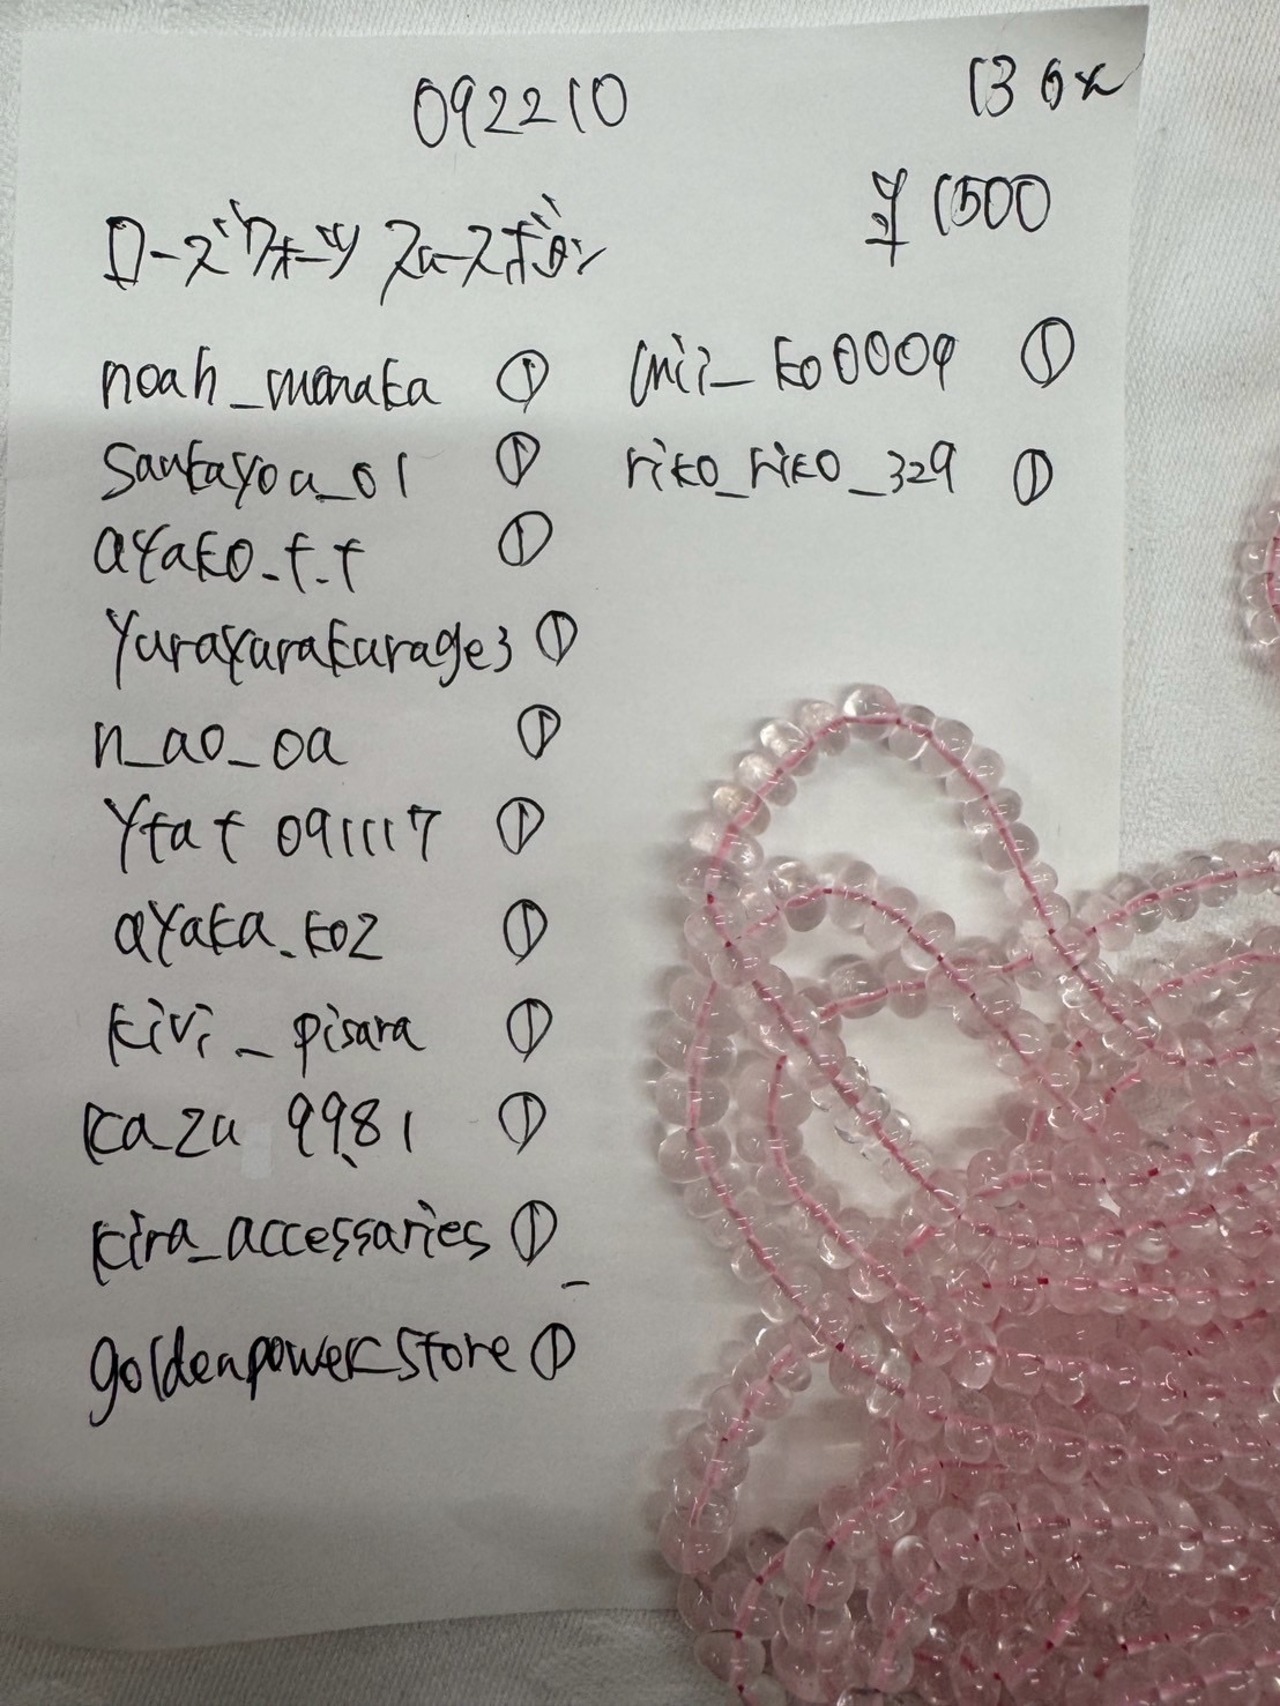 092210
13 0x
¥1500
ローズクォーツ スムースボタン
noah_manaka ①
sankayoa_01 ①
ayako_t.t ①
yurayurakurage3 ①
n_ao_oa ①
ytat 091117 ①
ayaka.koz ①
kivi_pisara ①
ka_zu 9981 ①
kira_accessaries ①
goldenpowerstore ①
mii_ko0009 ①
riko_riko_329 ①